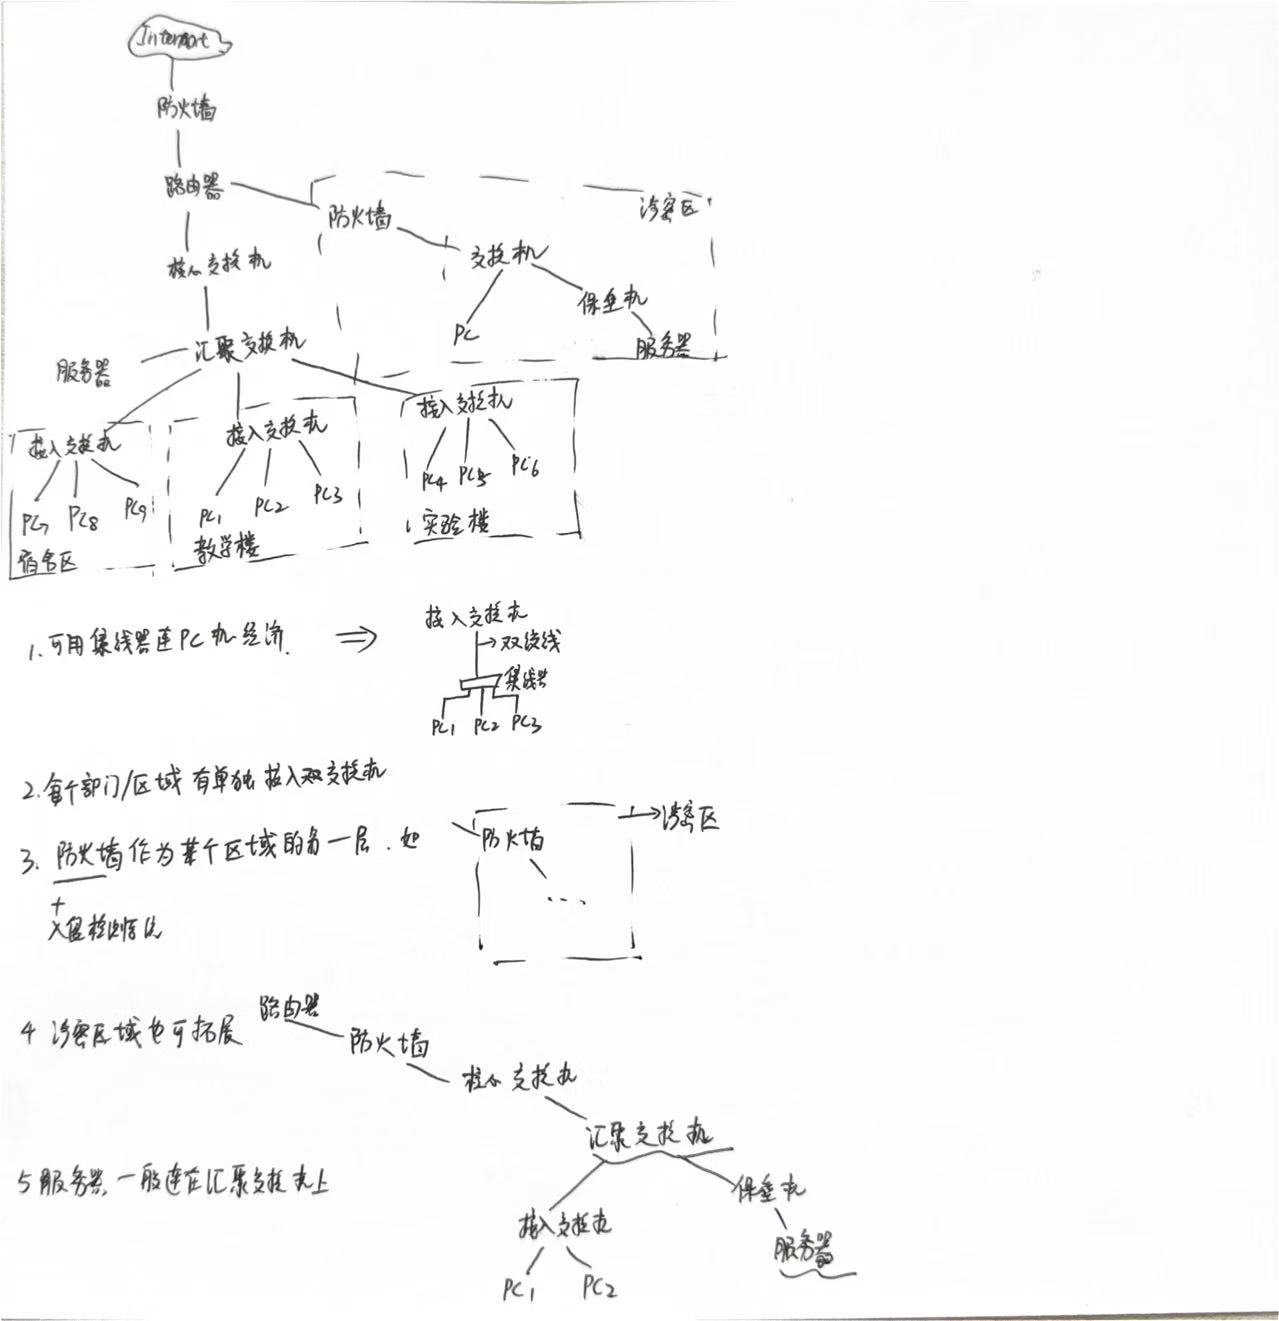 Internet
防火墙
路由器
防火墙
涉密区
核心交换机
交换机
保垒机
PC
服务器
汇聚交换机
服务器
接入交换机
接入交换机
接入交换机
PC7 PC8 PC9
PC1 PC2 PC3
PC4 PC5 PC6
宿舍区
教学楼
实验楼
1.可用集线器连PC机经济. ⇒
接入交换机
→双绞线
集线器
PC1 PC2 PC3
2.每个部门/区域有单独接入交换机
3. 防火墙作为某个区域的第一层.如
+
入侵检测系统
防火墙
...
→涉密区
4 涉密区域也可拓展
路由器
防火墙
核心交换机
汇聚交换机
保垒机
服务器
接入交换机
PC1 PC2
5服务器一般连在汇聚交换机上